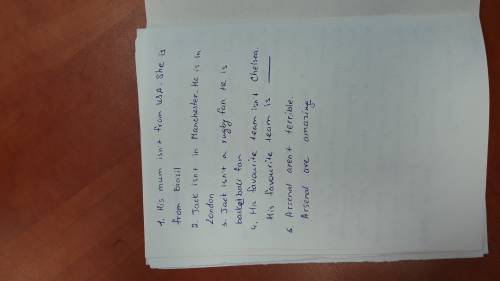 1. His mum isn't from USA. She is
from Brazil
2. Jack isn't in Manchester. He is in
London
3. Jack isn't a rugby fan He is
basketball fan
4. His favourite team isn't Chelsea.
His favourite team is ____
6. Arsenal aren't terrible.
Arsenal are amazing